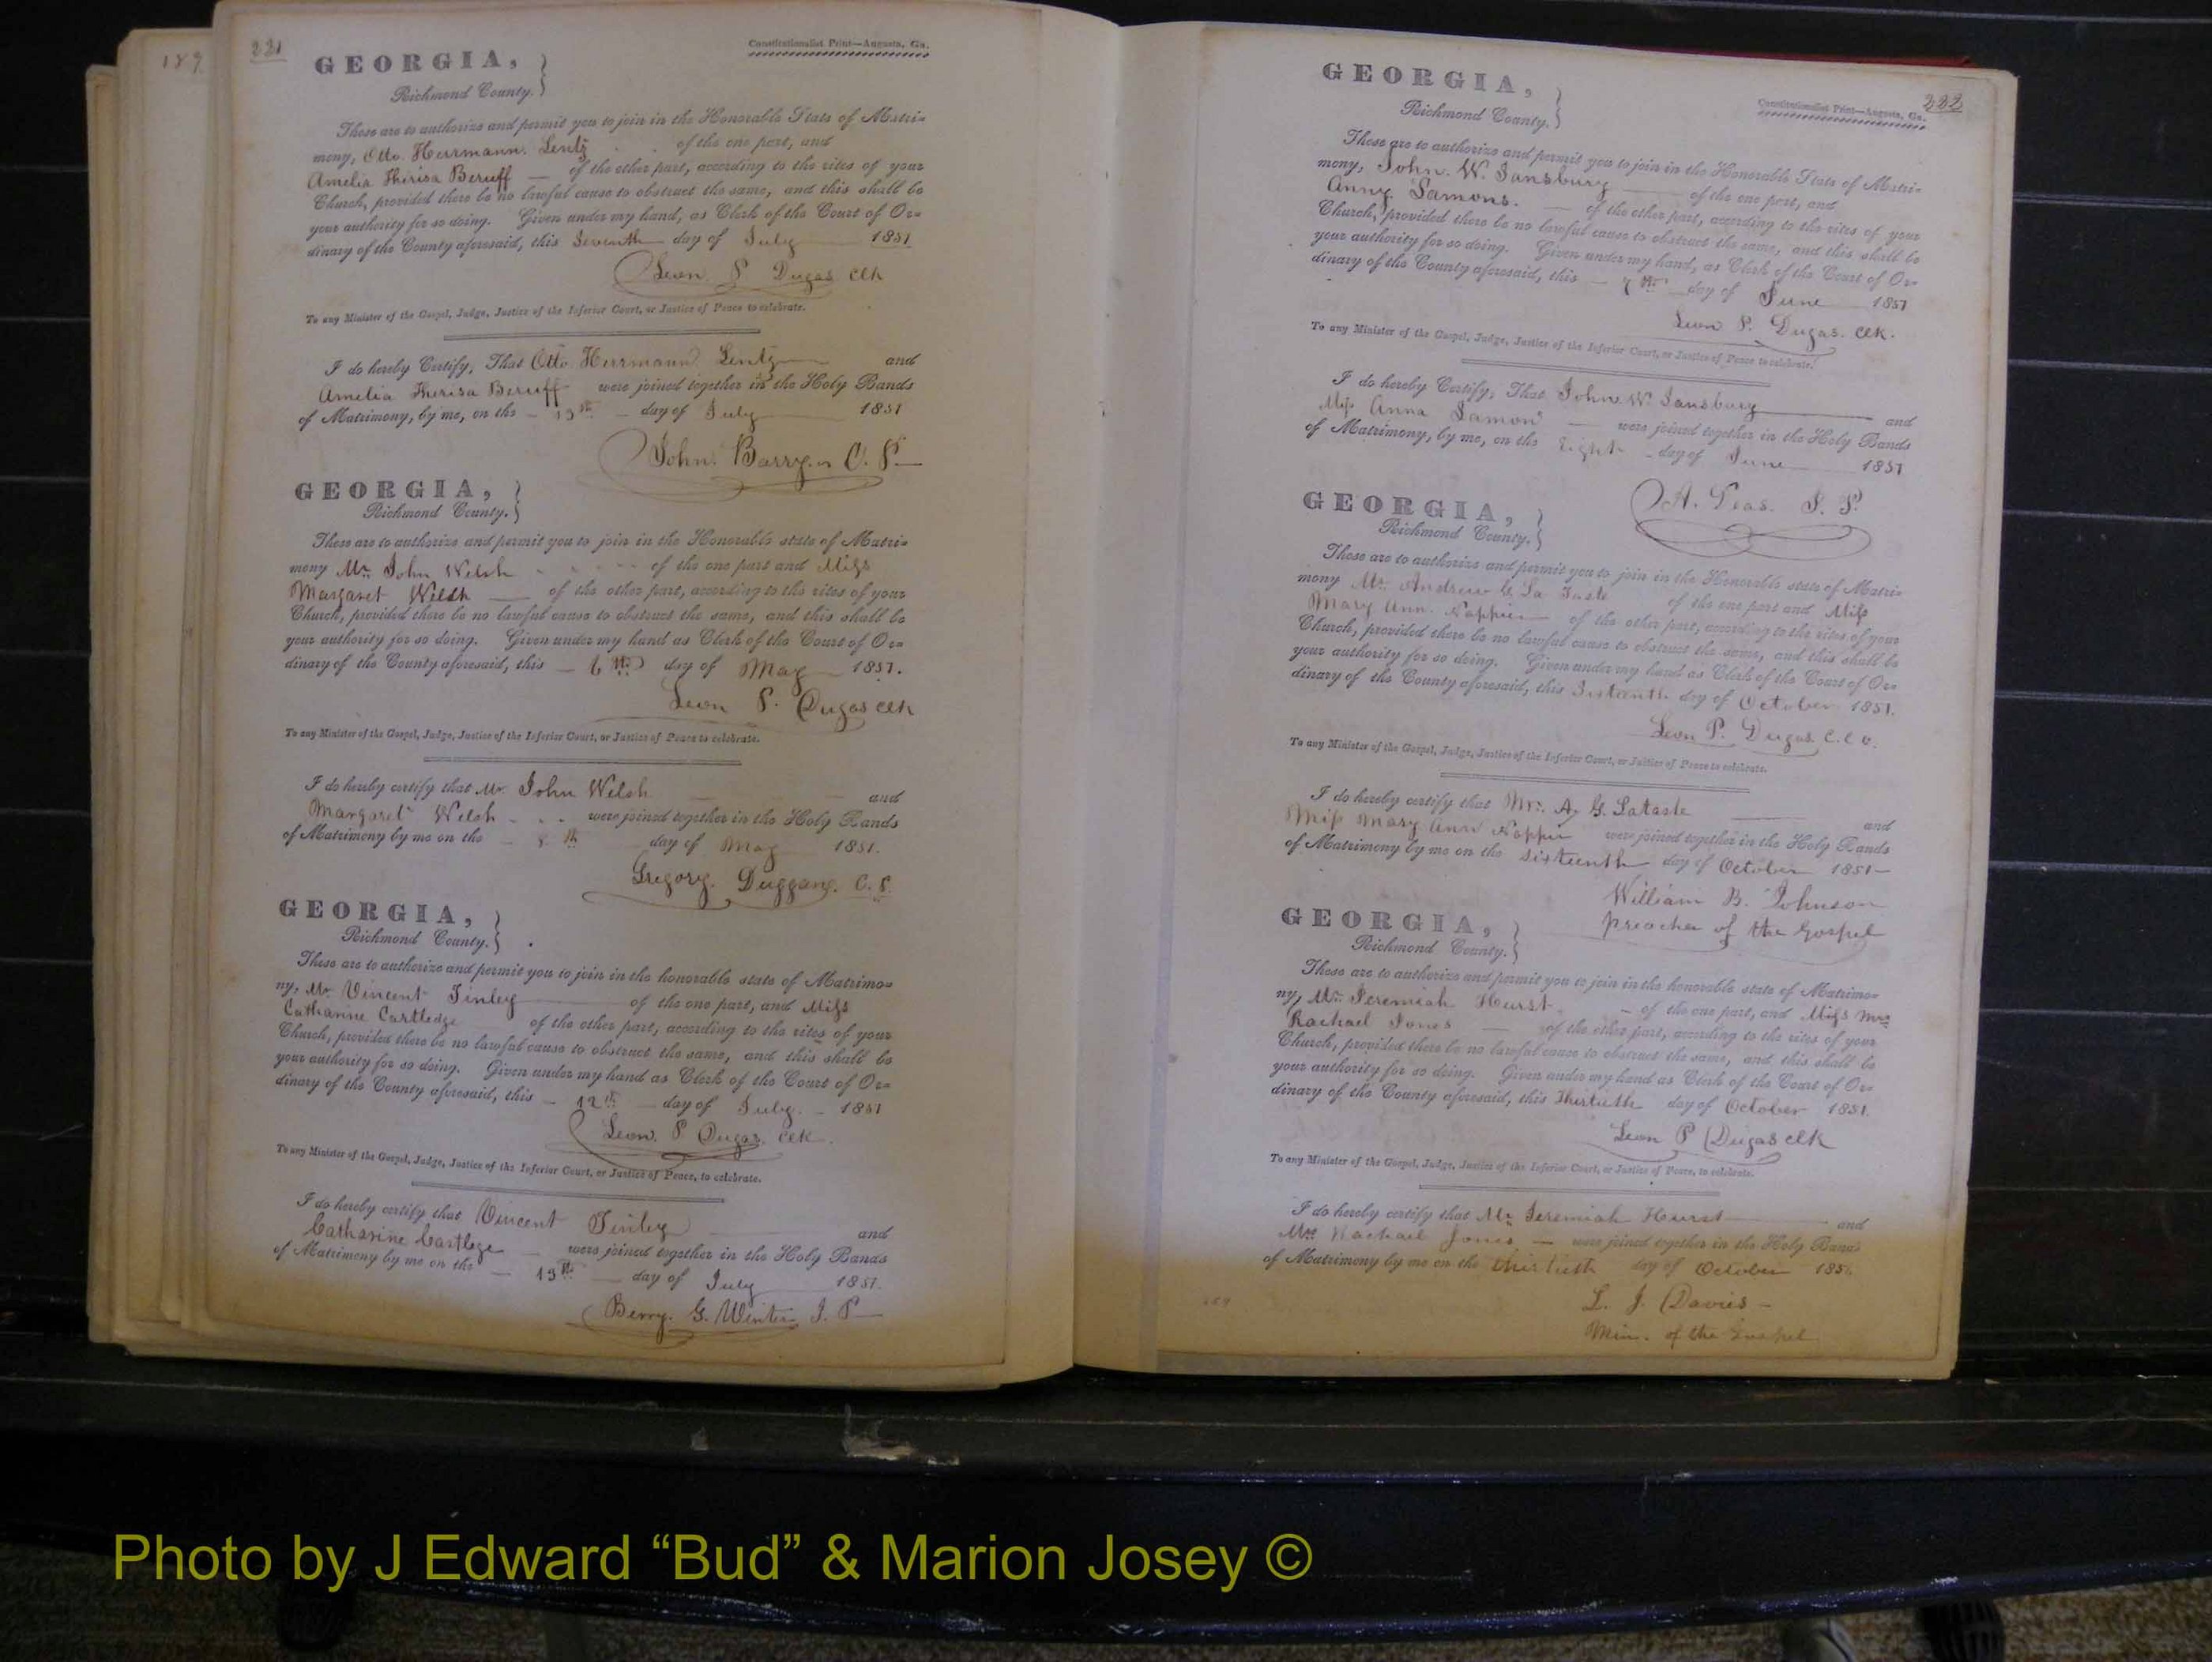 189
221
Constitutionalist Print—Augusta, Ga.
GEORGIA,
Richmond County.
These are to authorize and permit you to join in the Honorable State of Matri-
mony, Otto. Herrmann. Lentz of the one part, and
Amelia Therisa Beruff — of the other part, according to the rites of your
Church, provided there be no lawful cause to obstruct the same, and this shall be
your authority for so doing. Given under my hand, as Clerk of the Court of Or-
dinary of the County aforesaid, this Seventh day of July 1851
Leon. P. Dugas clk
To any Minister of the Gospel, Judge, Justice of the Inferior Court, or Justice of Peace to celebrate.
I do hereby Certify, That Otto Herrmann Lentz and
Amelia Therisa Beruff were joined together in the Holy Bands
of Matrimony, by me, on the — 13th — day of July 1851
John. Barry. C. P.
GEORGIA,
Richmond County.
These are to authorize and permit you to join in the Honorable state of Matri-
mony Mr. John Welsh of the one part and Miss
Margaret Welsh — of the other part, according to the rites of your
Church, provided there be no lawful cause to obstruct the same, and this shall be
your authority for so doing. Given under my hand as Clerk of the Court of Or-
dinary of the County aforesaid, this — 6th day of May 1851.
Leon P. Dugas clk
To any Minister of the Gospel, Judge, Justice of the Inferior Court, or Justice of Peace to celebrate.
I do hereby certify that Mr. John Welsh and
Margaret Welsh were joined together in the Holy Bands
of Matrimony by me on the — 8th day of May 1851.
Gregory. Duggan. C. P.
GEORGIA,
Richmond County.
These are to authorize and permit you to join in the honorable state of Matrimo-
ny, Mr Vincent Finley of the one part, and Miss
Catharine Cartledge of the other part, according to the rites of your
Church, provided there be no lawful cause to obstruct the same, and this shall be
your authority for so doing. Given under my hand as Clerk of the Court of Or-
dinary of the County aforesaid, this — 12th — day of July. — 1851
Leon. P Dugas. clk.
To any Minister of the Gospel, Judge, Justice of the Inferior Court, or Justice of Peace, to celebrate.
I do hereby certify that Vincent Finley and
Catharine Cartlege — were joined together in the Holy Bands
of Matrimony by me on the — 13th — day of July 1851.
Berry. G. Winter J. P
GEORGIA,
Richmond County.
222
Constitutionalist Print—Augusta, Ga.
These are to authorize and permit you to join in the Honorable State of Matri-
mony, John. W. Sansbury of the one part, and
Anny Lamons. — of the other part, according to the rites of your
Church, provided there be no lawful cause to obstruct the same, and this shall be
your authority for so doing. Given under my hand, as Clerk of the Court of Or-
dinary of the County aforesaid, this — 7th day of June 1851
Leon P. Dugas. clk.
To any Minister of the Gospel, Judge, Justice of the Inferior Court, or Justice of Peace to celebrate.
I do hereby Certify, That John W. Sansbury and
Miss Anna Lamon — were joined together in the Holy Bands
of Matrimony, by me, on the Eight day of June 1851
A. Peas. J. P.
GEORGIA,
Richmond County.
These are to authorize and permit you to join in the Honorable state of Matri-
mony Mr. Andrew G La Taste of the one part and Miss
Mary Ann. Nappier of the other part, according to the rites of your
Church, provided there be no lawful cause to obstruct the same, and this shall be
your authority for so doing. Given under my hand as Clerk of the Court of Or-
dinary of the County aforesaid, this Sixteenth day of October 1851.
Leon P. Dugas C.C.O.
To any Minister of the Gospel, Judge, Justice of the Inferior Court, or Justice of Peace to celebrate.
I do hereby certify that Mr. A, G. Lataste and
Miss Mary Ann Nappier were joined together in the Holy Bands
of Matrimony by me on the Sixteenth day of October 1851—
William B. Johnson
preacher of the Gospel
GEORGIA,
Richmond County.
These are to authorize and permit you to join in the honorable state of Matrimo-
ny, Mr. Jeremiah Hurst. — of the one part, and Miss Mrs
Rachael Jones — of the other part, according to the rites of your
Church, provided there be no lawful cause to obstruct the same, and this shall be
your authority for so doing. Given under my hand as Clerk of the Court of Or-
dinary of the County aforesaid, this Thirtieth day of October 1851.
Leon P Dugas clk
To any Minister of the Gospel, Judge, Justice of the Inferior Court, or Justice of Peace, to celebrate.
I do hereby certify that Mr Jeremiah Hurst and
Mrs Rachael Jones — were joined together in the Holy Bands
of Matrimony by me on the thirtieth day of October 1851
L. J. Davies —
Min. of the Gospel
Photo by J Edward “Bud” & Marion Josey ©